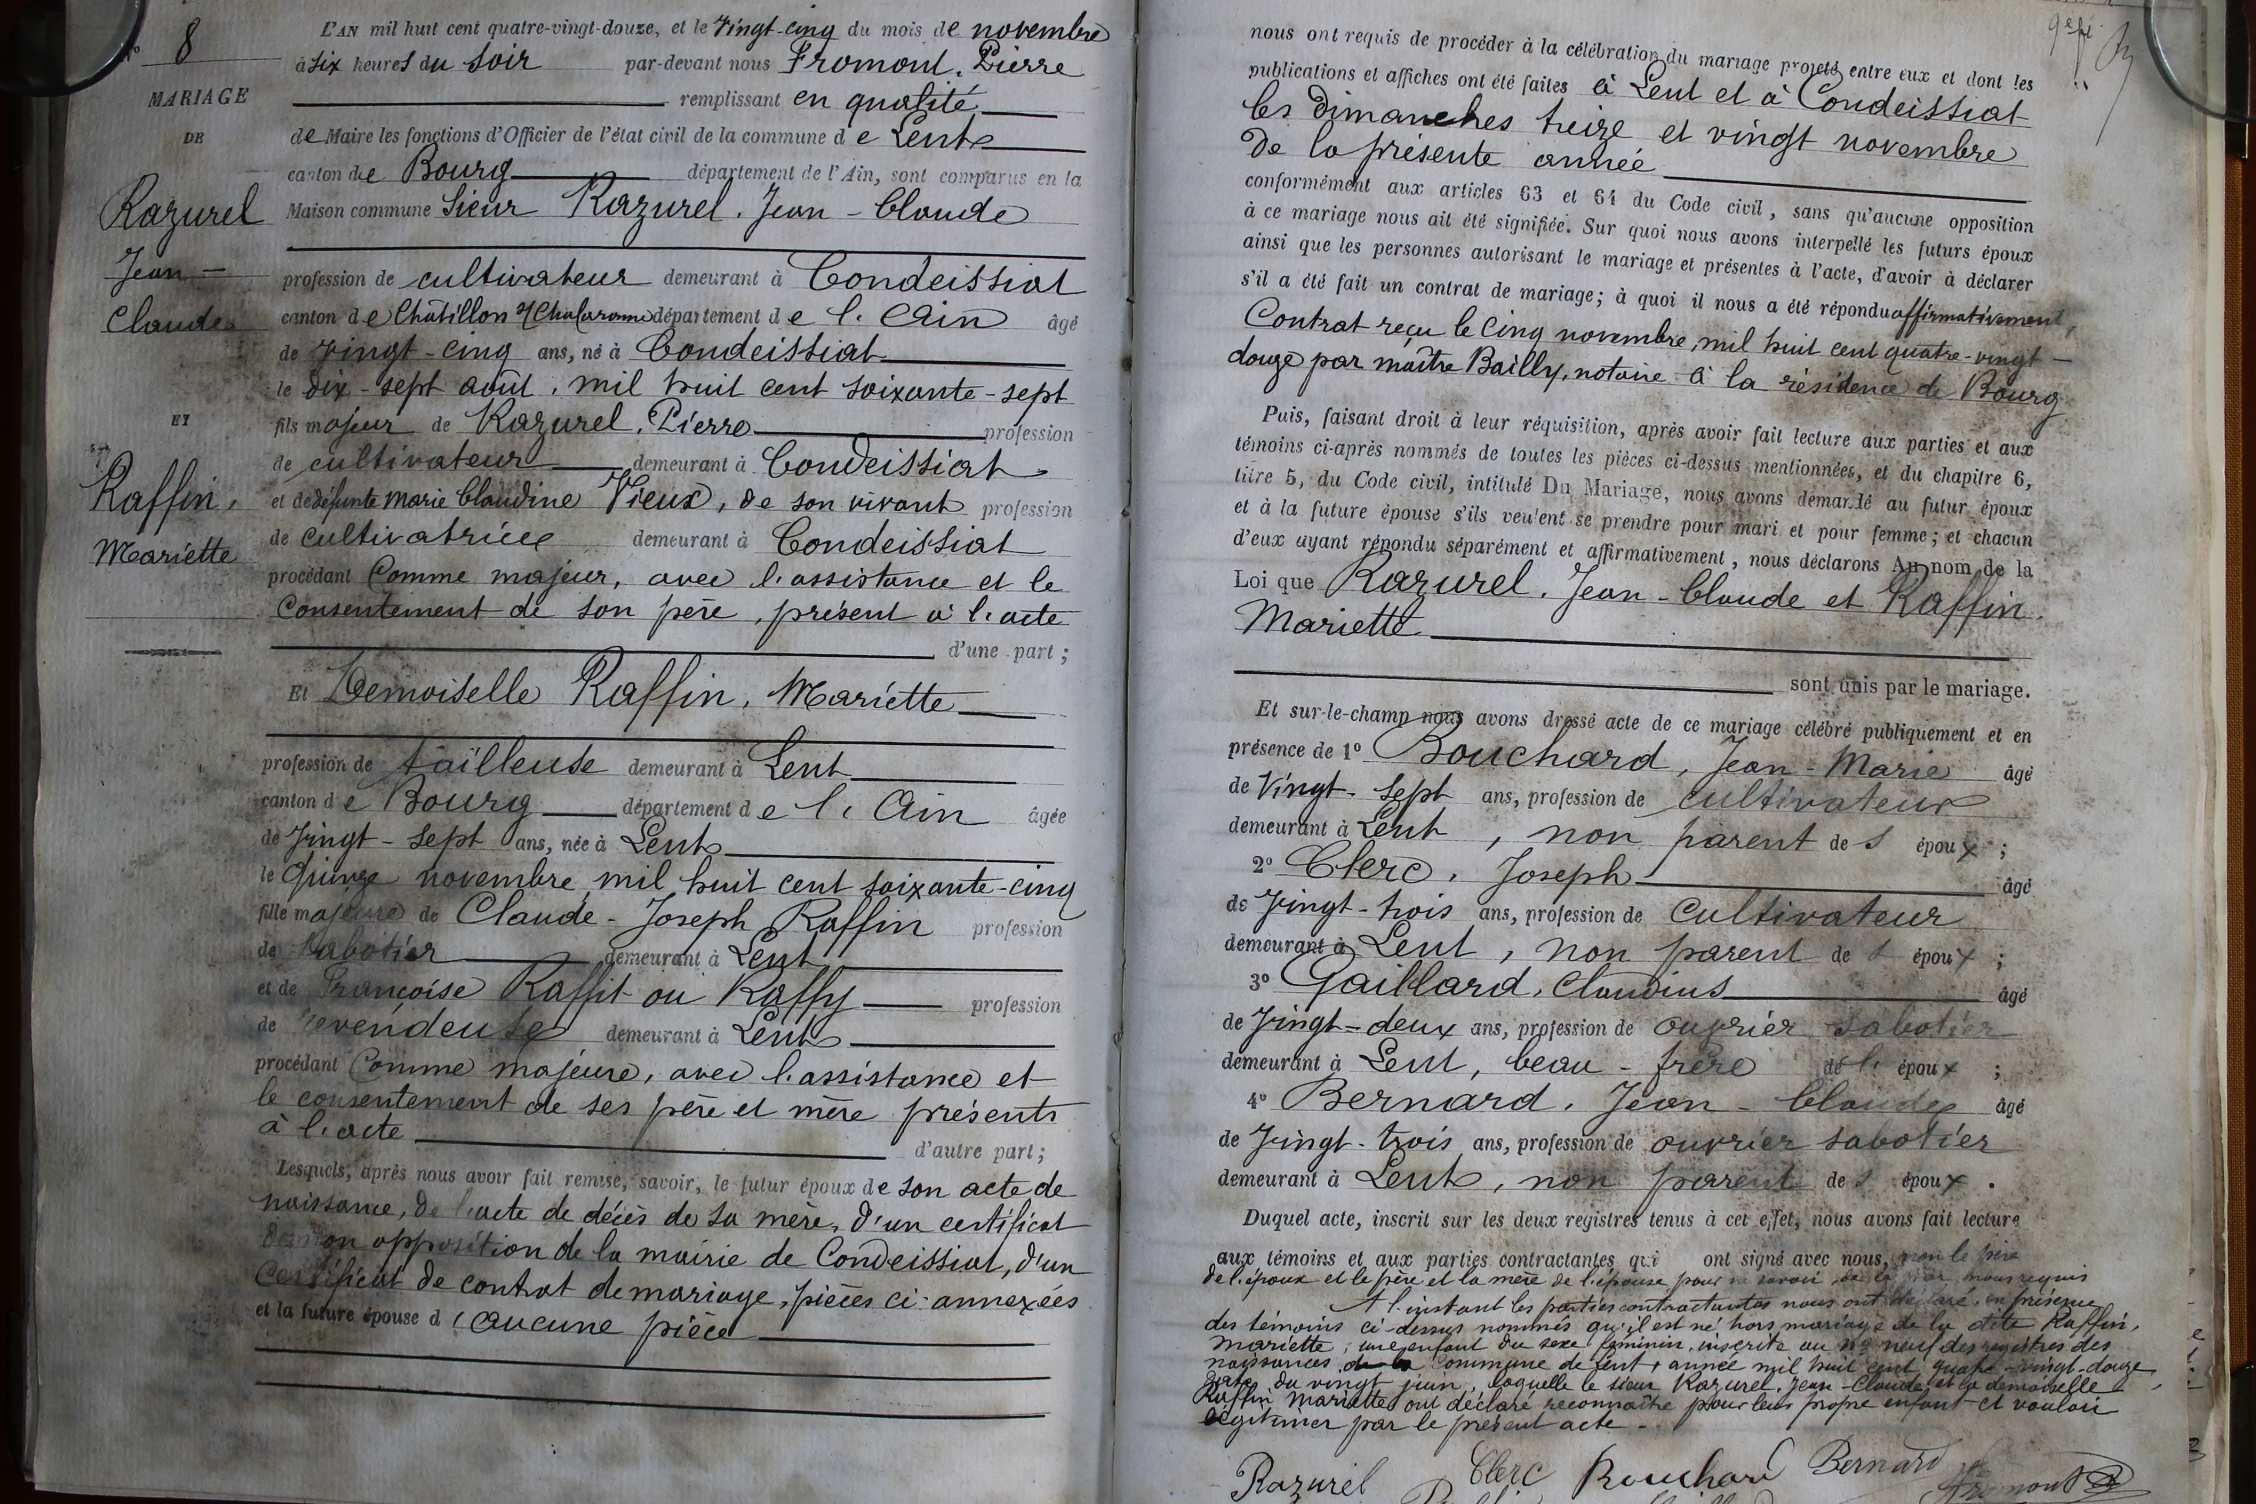 N° 8
MARIAGE
DE
Razurel
Jean –
Claude
ET
Raffin,
Mariette
L'AN mil huit cent quatre-vingt-douze, et le Vingt-cinq du mois de novembre
à six heures du soir par-devant nous Fromont, Pierre
remplissant en qualité
de Maire les fonctions d'Officier de l'état civil de la commune de Lent
canton de Bourg département de l'Ain, sont comparus en la
Maison commune Sieur Razurel, Jean-Claude
profession de cultivateur demeurant à Condeissiat
canton de Châtillon s/ Chalaronne département de l'Ain âgé
de vingt-cinq ans, né à Condeissiat
le dix-sept août, mil huit cent soixante-sept
fils majeur de Razurel, Pierre profession
de cultivateur demeurant à Condeissiat
et de défunte Marie Claudine Vieux, de son vivant profession
de cultivatrice demeurant à Condeissiat
procédant Comme majeur, avec l'assistance et le
Consentement de son père, présent à l'acte
d'une part ;
Et Demoiselle Raffin, Mariette
profession de tailleuse demeurant à Lent
canton de Bourg département de l'Ain âgée
de Vingt-sept ans, née à Lent
le Quinze novembre mil huit cent soixante-cinq
fille majeure de Claude-Joseph Raffin profession
de sabotier demeurant à Lent
et de Françoise Raffit ou Raffy profession
de revendeuse demeurant à Lent
procédant Comme majeure, avec l'assistance et
le consentement de ses père et mère présents
à l'acte d'autre part ;
Lesquels, après nous avoir fait remise, savoir, le futur époux de son acte de
naissance, de l'acte de décès de sa mère, d'un certificat
de non opposition de la mairie de Condeissiat, d'un
Certificat de contrat de mariage, pièces ci-annexées
et la future épouse d'aucune pièce
nous ont requis de procéder à la célébration du mariage projeté entre eux et dont les
publications et affiches ont été faites à Lent et à Condeissiat
les Dimanches treize et vingt novembre
de la présente année
conformément aux articles 63 et 64 du Code civil, sans qu'aucune opposition
à ce mariage nous ait été signifiée. Sur quoi nous avons interpellé les futurs époux
ainsi que les personnes autorisant le mariage et présentes à l'acte, d'avoir à déclarer
s'il a été fait un contrat de mariage ; à quoi il nous a été répondu affirmativement,
Contrat reçu le Cinq novembre, mil huit cent quatre-vingt-
douze par maître Bailly, notaire à la résidence de Bourg
Puis, faisant droit à leur réquisition, après avoir fait lecture aux parties et aux
témoins ci-après nommés de toutes les pièces ci-dessus mentionnées, et du chapitre 6,
titre 5, du Code civil, intitulé Du Mariage, nous avons demandé au futur époux
et à la future épouse s'ils veulent se prendre pour mari et pour femme ; et chacun
d'eux ayant répondu séparément et affirmativement, nous déclarons Au nom de la
Loi que Razurel, Jean-Claude et Raffin,
Mariette
sont unis par le mariage.
Et sur-le-champ nous avons dressé acte de ce mariage célébré publiquement et en
présence de 1° Bouchard, Jean-Marie âgé
de Vingt-sept ans, profession de cultivateur
demeurant à Lent, non parent des époux ;
2° Clerc, Joseph âgé
de Vingt-trois ans, profession de Cultivateur
demeurant à Lent, non parent des époux ;
3° Gaillard, Claudius âgé
de Vingt-deux ans, profession de ouvrier sabotier
demeurant à Lent, beau-frère de l'époux ;
4° Bernard, Jean-Claude âgé
de Vingt-trois ans, profession de ouvrier sabotier
demeurant à Lent, non parent des époux.
Duquel acte, inscrit sur les deux registres tenus à cet effet, nous avons fait lecture
aux témoins et aux parties contractantes qui ont signé avec nous, non le père
de l'époux et le père et la mère de l'épouse pour ne savoir, de ce par nous requis
A l'instant les parties contractantes nous ont déclaré, en présence
des témoins ci-dessus nommés qu'il est né hors mariage de la dite Raffin,
Mariette, une enfant du sexe féminin, inscrite au n° neuf des registres des
naissances de la Commune de Lent, année mil huit cent quatre-vingt-douze
date du vingt juin, laquelle le sieur Razurel, Jean-Claude et la demoiselle
Raffin Mariette ont déclaré reconnaître pour leur propre enfant et vouloir
légitimer par le présent acte.
Razurel Clerc Bouchard Bernard Fromont